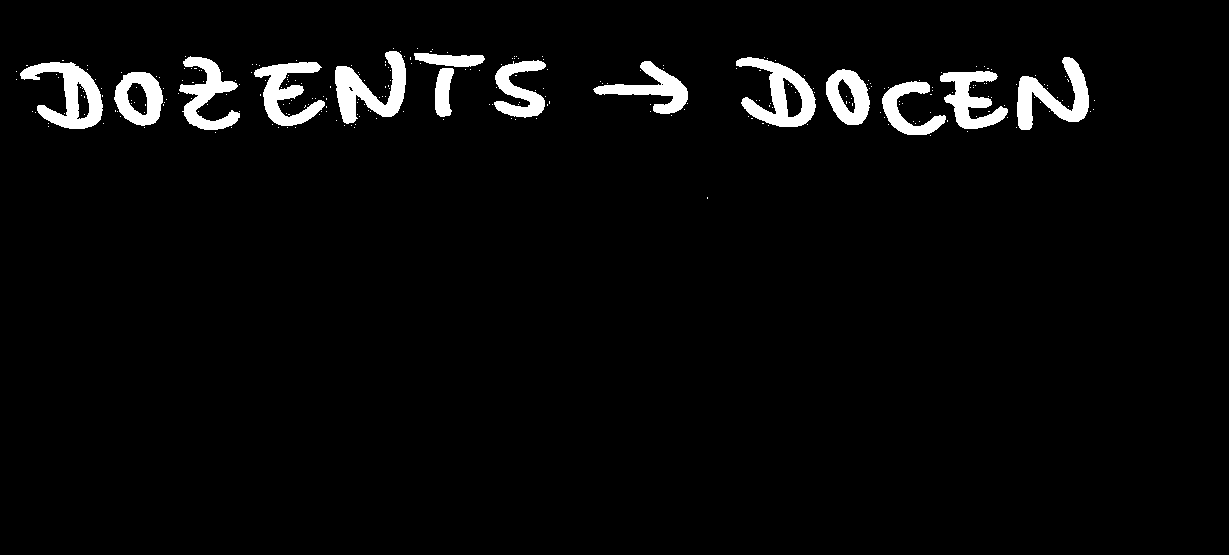 DOZENTS → DOCEN